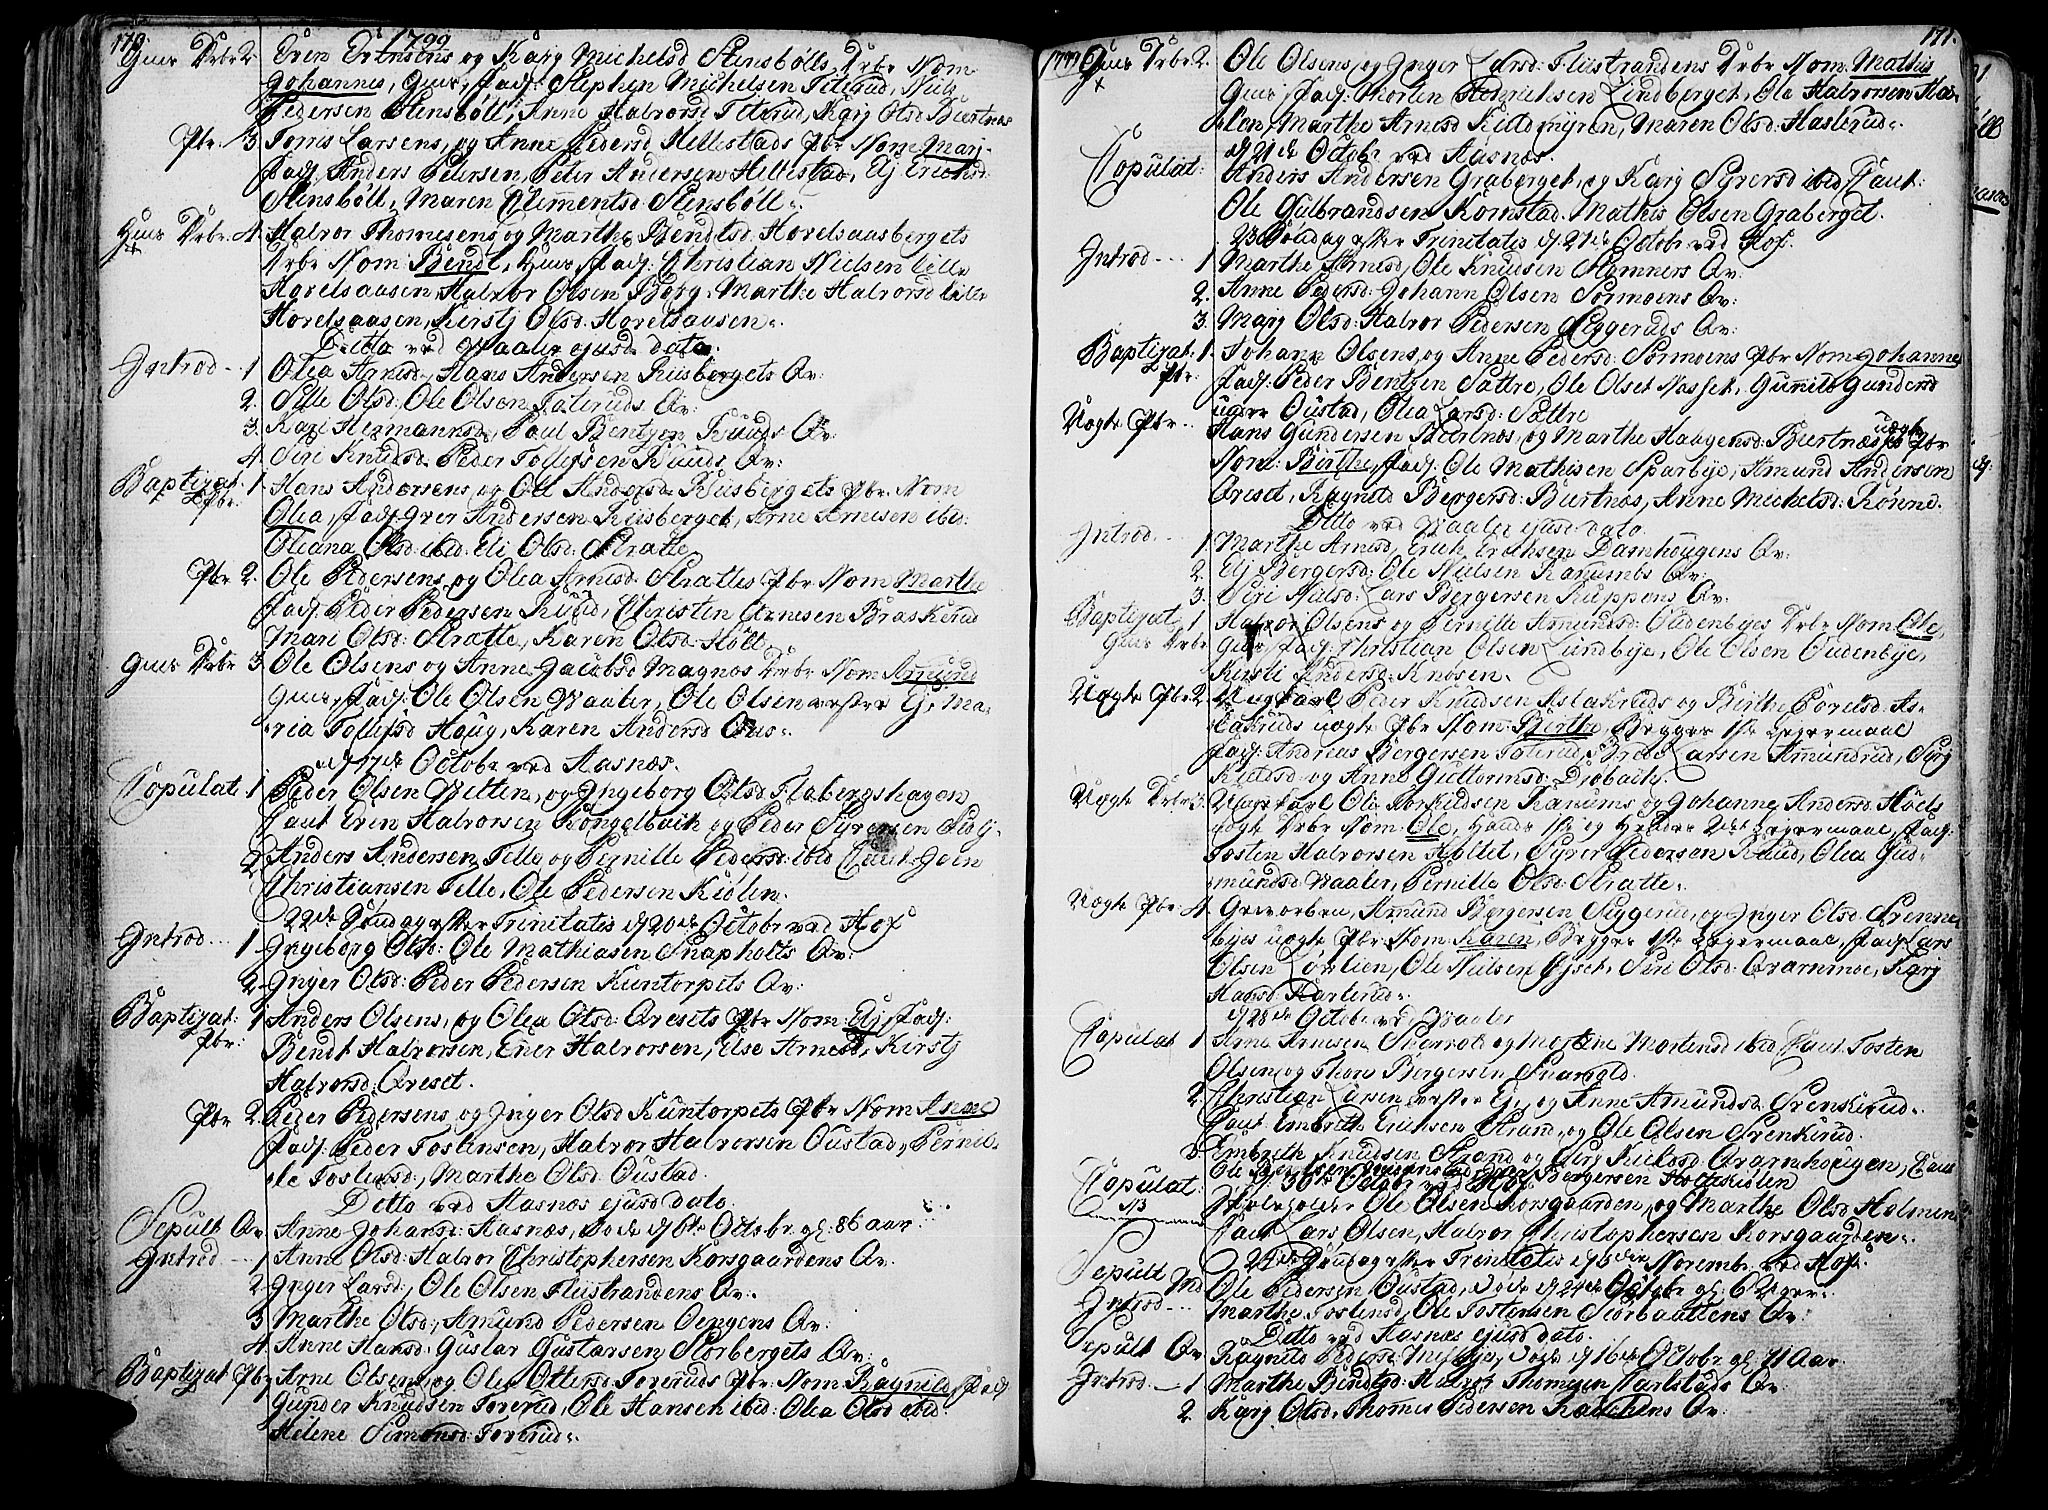 170.
1799
Gms Drbr 2. Even Evensens og Karj Michelsd Stensbölls, Drbr Nom
Johannes, Gms, Fadj: Stephen Michelsen Titerud, Niels
Pedersen Stensböll, Anne Halvorsd Titerud, Karj Olsd Biertnæs
Pbr. 3. Torris Larsens, og Anne Pedersd Hellestads Pbr Nom: Marj
Fadj: Anders Petersen, Peter Andersen Hellestad, Elj Erichsd:
Stensböll, Maren Clementsd Stensböll.
Hms Drbr. 4. Halvor Thomesens og Marthe Bendtsd: Hovelsaasbergets
Drbr Nom: Bendt, Hms, Fadj: Christian Nielsen lille
Hovelsaasen, Halvor Olsen Berg, Marthe Halvorsd lille
Hovelsaasen, Kirstj Olsd: Hovelsaasen.
Ditto ved Waaler ejusd: dato.
Introd 1 Olea Arnesd, Hans Andersen Riisbergets Qv:
2. Sille Olsd: Ole Olsen Tateruds Qv:
3. Kari Hermannsd, Poul Bentzen Ruuds Qv:
4 Siri Knudsd. Peder Tollefsen Ruuds Qv:
Baptizat. Pbr: 1. Hans Andersens, og Oll Andersd Riisbergets Pbr. Nom
Olea, Fadj: Iver Andersen Riisberget, Arne Arnesen ibid:
Oleana Olsd: ibid: Eli Olsd: Stratte
Pbr 2. Ole Pedersens, og Olea Arnesd Strattes Pbr Nom Marthe
Fadj: Peder Pedersen Ruud, Christen Arnesen Braskerud
Mari Olsd: Stratte, Karen Olsd Holt.
Gms Drbr 3. Ole Olsens og Anne Jacobsd Magnos Drbr Nom Amund
Gms, Fadj: Ole Olsen Waaler, Ole Olsen vestre Ej, Ma-
ria Tollefsd Houg, Karen Andersd Ous.
d 17de Octobr ved Aasnæs.
Copulat. 1 Peder Olsen Velten, og Ingeborg Olsd: Flabergshagen
Caut Even Halvorsen Kongelbaik og Peder Syversen Siölj.
2. Anders Andersen Telle og Pernille Pedersd: ibid Caut: Joen
Christiansen Telle, Ole Pedersen Kiölen.
22de Söndag efter Trinitatis d 20de Octobr ved Hof
Introd 1. Ingeborg Olsd: Ole Mathiasen Snapholts Qv:
2. Inger Olsd: Peder Pedersen Kuntorpets Qv:
Baptizat: Pbr: 1 Anders Olsens, og Olea Olsd: Qvesets Pbr Nom: Elj, Fadj:
Bendt Halvorsen, Ener Halvorsen, Else Arnesd, Kirstj
Halvorsd: Qveset.
Pbr 2. Peder Pedersens, og Inger Olsd: Kuntorpets Pbr Nom Anne
Fadj: Peder Tostensen, Halvor Halvorsen Oustad, Pernil-
le Tostensd, Marthe Olsd Oustad.
Ditto ved Aasnæs ejusd dato.
Sepult Qv Anne Johansd: Aasnæs, Döde d 6te Octobr gl: 86 aar
Introd 1 Anne Olsd: Halvor Christophersen Korsgaardens Qv.
2. Inger Larsd, Ole Olsen Fliistrandens Qv.
3 Marthe Olsd, Amund Pedersen Oengens Qv:
4 Anne Hansd: Gustav Gustavsen Storbergets Qv:
Baptizat Pbr Arne Olsens, og Olea Ottersd Toveruds Pbr. Nom: Ragnild, Fadj:
Gunder Knudsen Toverud, Ole Hansen ibid: Olea Olsd ibid:
Helene Simonsd: Toverud.
171.
1799
Gms Drbr 2. Ole Olsens, og Inger Larsd: Fliistrandens Drbr Nom: Mathis
Gms, Fadj: Morten Hendrichsen Lindberget, Ole Halvorsen Ha-
len, Marthe Arnesd Kieldmyren, Maren Olsd: Hasterud.
d 21de Octobr ved Aasnæs.
Copulat: Anders Andersen Graberget, og Karj Syversd ibid, Caut:
Ole Gulbrandsen Komstad, Mathis Olsen Graberget.
23 Söndag efter Trinitatis d 27de Octobr ved Hof.
Introd 1. Marthe Arnesd, Ole Knudsen Stomners Qv:
2. Anne Pedersd: Johann Olsen Sormoens Qv:
3. Marj Olsd: Halvor Pedersen Seggeruds Qv:
Baptizat: Pbr: 1. Johann Olsens, og Anne Pedersd: Sormoens Pbr Nom Johanne
Fadj: Peder Bentzen Sattre, Ole Olset Nasset, Gunild Gundersd
Oustad, Olea Larsd: Sattre
Uægte Pbr Hans Gundersen Biertnæs, og Marthe Haagensd: Biertnæs uægte Pbr
Nom: Birthe, Fadj: Ole Mathisen Sparbye, Amund Andersen
Qveset, Ragnild Bergersd: Biertnæs, Anne Michelsd: Rönne.
Ditto ved Waaler ejusd dato.
Introd 1. Marthe Arnesd, Erich Erichsen Damhougens Qv:
2. Elj Bergersd: Ole Nielsen Ranumbs Qv:
3. Siri Nielsd: Lars Bergersen Kuppens Qv:
Baptizat Gms Drbr 1 Halvor Olsens og Pernille Amundsd: Oudenbyes Drbr Nom: Ole,
Gms, Fadj: Christian Olsen Lundbye, Ole Olsen Oudenbye,
Kirsti Andersd: Knosen.
Uægte Pbr 2. Ungkarl Peder Knudsen Aslakruds og Birthe Povelsd: As-
lakruds uægte Pbr Nom: Birthe, Begges 1ste Legermaal
Fadj: Andreas Bergersen Toterud, Bred Larsen Amundrud, Syrg
Kieldsd og Anne Guttormsd: Diöbachs.
Uægte Drbr 3. Ungkarl Ole Torkildsen Ranums og Johanne Andersd: Höels
uægte Drbr Nom: Ole, Hands 1ste og Hendes 2det Legermaal, Fadj:
Tosten Halvorsen Holtet, Syver Pedersen Ruud, Olea Gud-
mundsd Waaler, Pernille Olsd: Stratte.
Uægte Pbr: 4. Gevorben, Amund Bergersen Siggerud, og Inger Olsd: Svenne-
byes uægte Pbr: Nom: Karen, Begges 1ste Legermaal, Fadj: Lars
Olsen Lövlien, Ole Nielsen Ejset, Siri Olsd: Qvarnmoe, Karj
Hansd: Harterud.
d 28de Octobr ved Waaler
Copulat 1 Arne Arnesen Svenrot og Mortine Mortensd ibid, Caut. Tosten
Olsen og Thore Bergersen Snarvold.
2. Christian Larsen vestre Ej, og Anne Amundsd Svenkerud.
Caut Embreth Erichsen Strand, og Ole Olsen Svenkerud.
3 Embreth Knudsen Strand og Syrg Kieldsd: Qvarnhougen, Caut
Ole Bergersen Holtekiölen
d. 30te Octobr ved Hof.
Copulat: NB Skoleholder Ole Olsen Korsgaarden, og Marthe Olsd Holmen
Caut Lars Olsen, Halvor Christophersen Korsgaarden.
24de Söndag efter Trinitatis d 3die Novembr. ved Hof:
Sepult Md Ole Pedersen Oustad, Döde d 24de Octobr gl: 6 Uger.
Introd Marthe Tostensd, Ole Tostensen Storbaattens Qv:
Ditto ved Aasnæs ejusd dato.
Sepult Qv Ragnild Pedersd: Mellbye, Döde d 16de Octobr gl: 71 Aar.
Introd 1 Marthe Bendtsd: Halvor Thomesen Karlstads Qv:
2. Karj Olsd: Thomes Pedersen Qv: